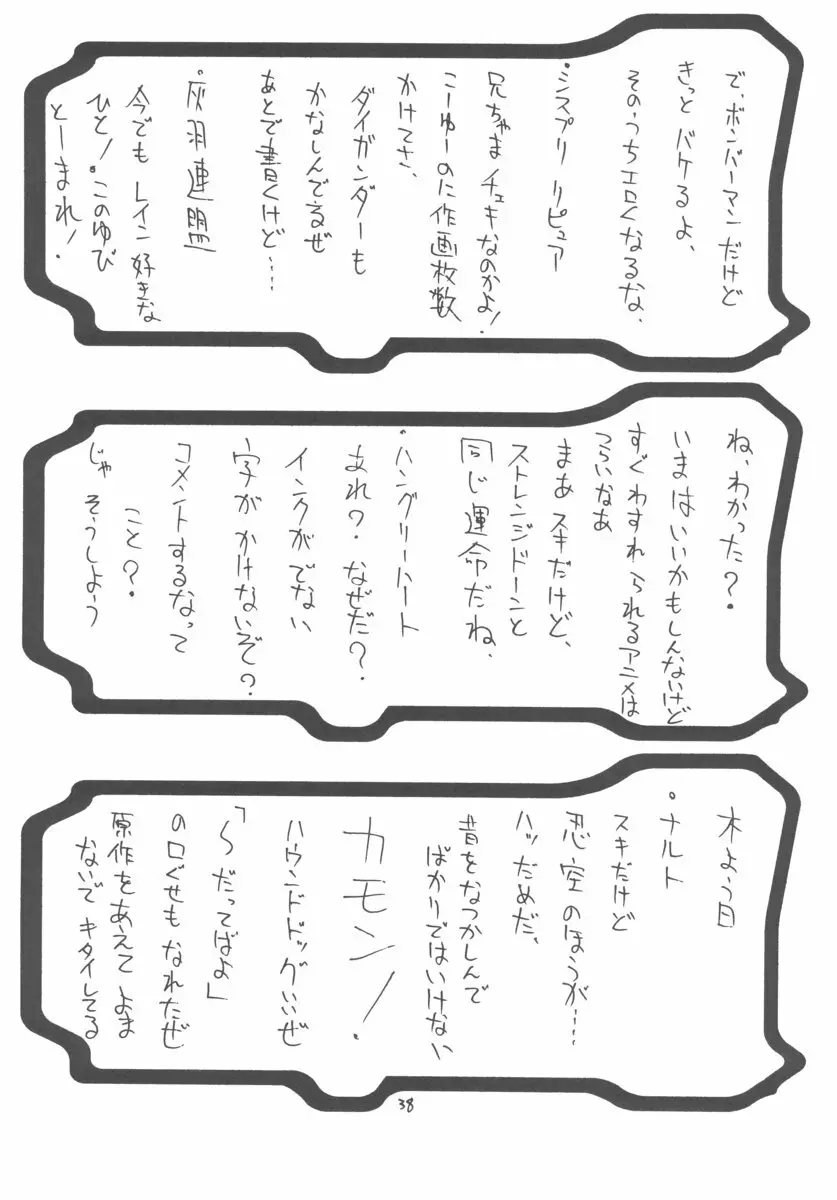 で、ボンバーマンだけど
きっとバケるよ、
そのうちエロくなるな、
・シスプリ リピュア
兄ちゃまチェキなのかよ!
こーゆーのに作画枚数
かけてさ、
ダイガンダーも
かなしんでるぜ
あとで書くけど…
・灰羽連盟
今でも レイン好きな
ひと!このゆび
とーまれ!
ね、わかった?
いまはいいかもしんないけど
すぐわすれられるアニメは
つらいなあ
まあスキだけど、
ストレンジドーンと
同じ運命だね、
・ハングリーハート
あれ?なぜだ?
インクがでない
字が かけないぞ?
コメントするなって
こと?
じゃ そうしよう
木よう日
・ナルト
スキだけど
忍空のほうが…
ハッだめだ、
昔をなつかしんで
ばかりではいけない
カモン!
ハウンドドッグいいぜ
「〜だってばよ」
の口ぐせも なれたぜ
原作をあえて よま
ないで キタイしてる
38